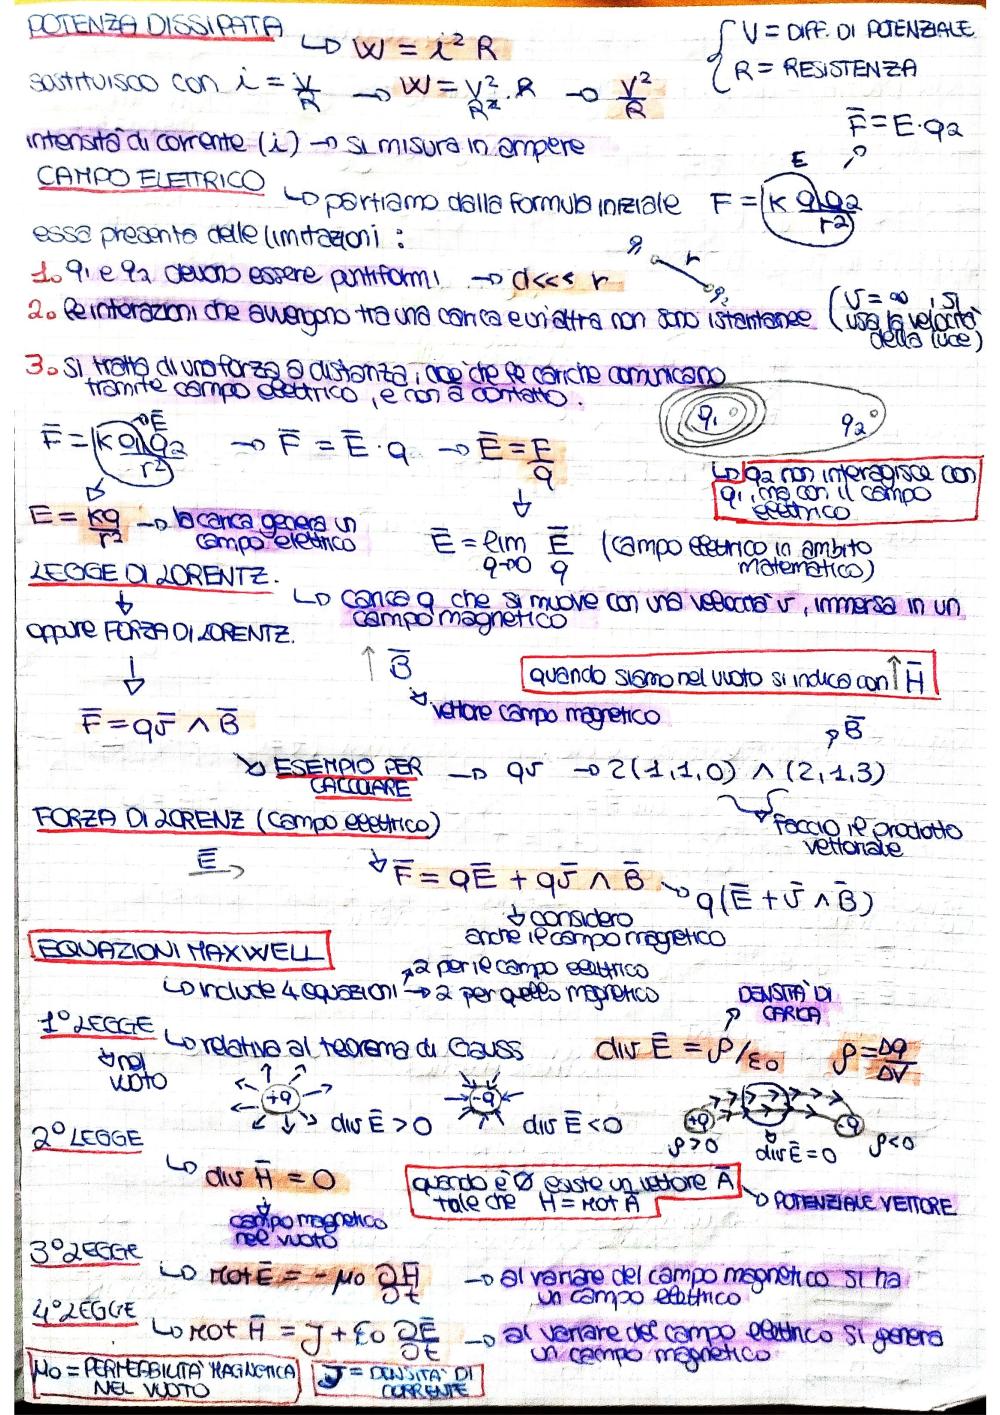 POTENZA DISSIPATA
↳ W = i² R
{ V = DIFF. DI POTENZIALE
R = RESISTENZA
sostituisco con i = V/R → W = V²/R² · R → V²/R
intensità di corrente (i) → si misura in ampere
F̄ = E·q2
E
CAMPO ELETTRICO
↳ partiamo dalla formula iniziale F = K q1 q2 / r²
essa presenta delle limitazioni:
1. q1 e q2 devono essere puntiformi → d<<< r
q1 r q2
2. le interazioni che avvengono tra una carica e un'altra non sono istantanee (v = ∞, si
usa la velocità
della luce)
3. si tratta di una forza a distanza, cioè che le cariche comunicano
tramite campo elettrico, e non a contatto.
q1 q2
F̄ = K q1 q2 / r² → F̄ = Ē · q → Ē = F/q
Ē
↳ q2 non interagisce con
q1, ma con il campo
elettrico
E = kq/r² → la carica genera un
campo elettrico
Ē = lim q→0 F̄/q (campo elettrico in ambito
matematico)
LEGGE DI LORENTZ.
↳ carica q che si muove con una velocità v, immersa in un
campo magnetico
oppure FORZA DI LORENTZ.
↑ B̄
vettore campo magnetico
quando siamo nel vuoto si indica con ↑ H̄
F̄ = qv̄ ∧ B̄
B̄
ESEMPIO PER
CALCOLARE
→ qv → 2(1,1,0) ∧ (2,1,3)
faccio il prodotto
vettoriale
FORZA DI LORENZ (campo elettrico)
Ē →
F̄ = qĒ + qv̄ ∧ B̄ → q(Ē + v̄ ∧ B̄)
considero
anche il campo magnetico
EQUAZIONI MAXWELL
↳ include 4 equazioni → 2 per il campo elettrico
→ 2 per quello magnetico
DENSITA' DI
CARICA
1° LEGGE
↳ relativa al teorema di Gauss div Ē = ρ/ε0 ρ = Δq/ΔV
nel
vuoto
+q div Ē > 0
-q div Ē < 0
+q -q
ρ>0 div Ē = 0 ρ<0
2° LEGGE
↳ div H̄ = 0
campo magnetico
nel vuoto
quando è Ø esiste un vettore Ā
tale che H = rot Ā
POTENZIALE VETTORE
3° LEGGE
↳ rot Ē = - μ0 ∂H̄/∂t → al variare del campo magnetico si ha
un campo elettrico
4° LEGGE
↳ rot H̄ = J + ε0 ∂Ē/∂t → al variare del campo elettrico si genera
un campo magnetico
μ0 = PERMEABILITA' MAGNETICA
NEL VUOTO
J = DENSITA' DI
CORRENTE